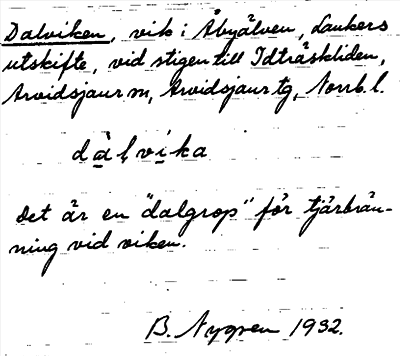 Dalviken, vik i Åbyälven, Laukers
utskifte, vid stigen till Idträskliden,
Arvidsjaur m, Arvidsjaur tg, Norrb. l.
dàlvika
Det är en "dalgrop" för tjärbrän-
ning vid viken.
B. Nygren 1932.